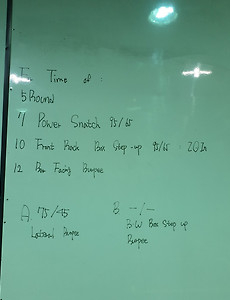 For Time of :
5 Round
7 Power Snatch 95/65
10 Front Rack Box Step-up 95/65 . 20In
12 Bar Facing Burpee
A. 75/45
Lateral Burpee
B. -- / --
B.W Box Step up
Burpee